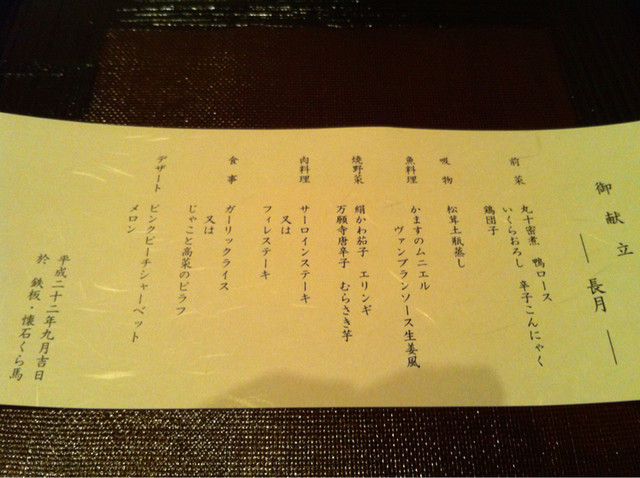 御献立
― 長月 ―
前菜
丸十蜜煮 鴨ロース
いくらおろし 辛子こんにゃく
鶏団子
吸物
松茸土瓶蒸し
魚料理
かますのムニエル
ヴァンブランソース生姜風
焼野菜
絹かわ茄子 エリンギ
万願寺唐辛子 むらさき芋
肉料理
サーロインステーキ
又は
フィレステーキ
食事
ガーリックライス
又は
じゃこと高菜のピラフ
デザート
ピンクピーチシャーベット
メロン
平成二十二年九月吉日
於 鉄板・懐石くら馬